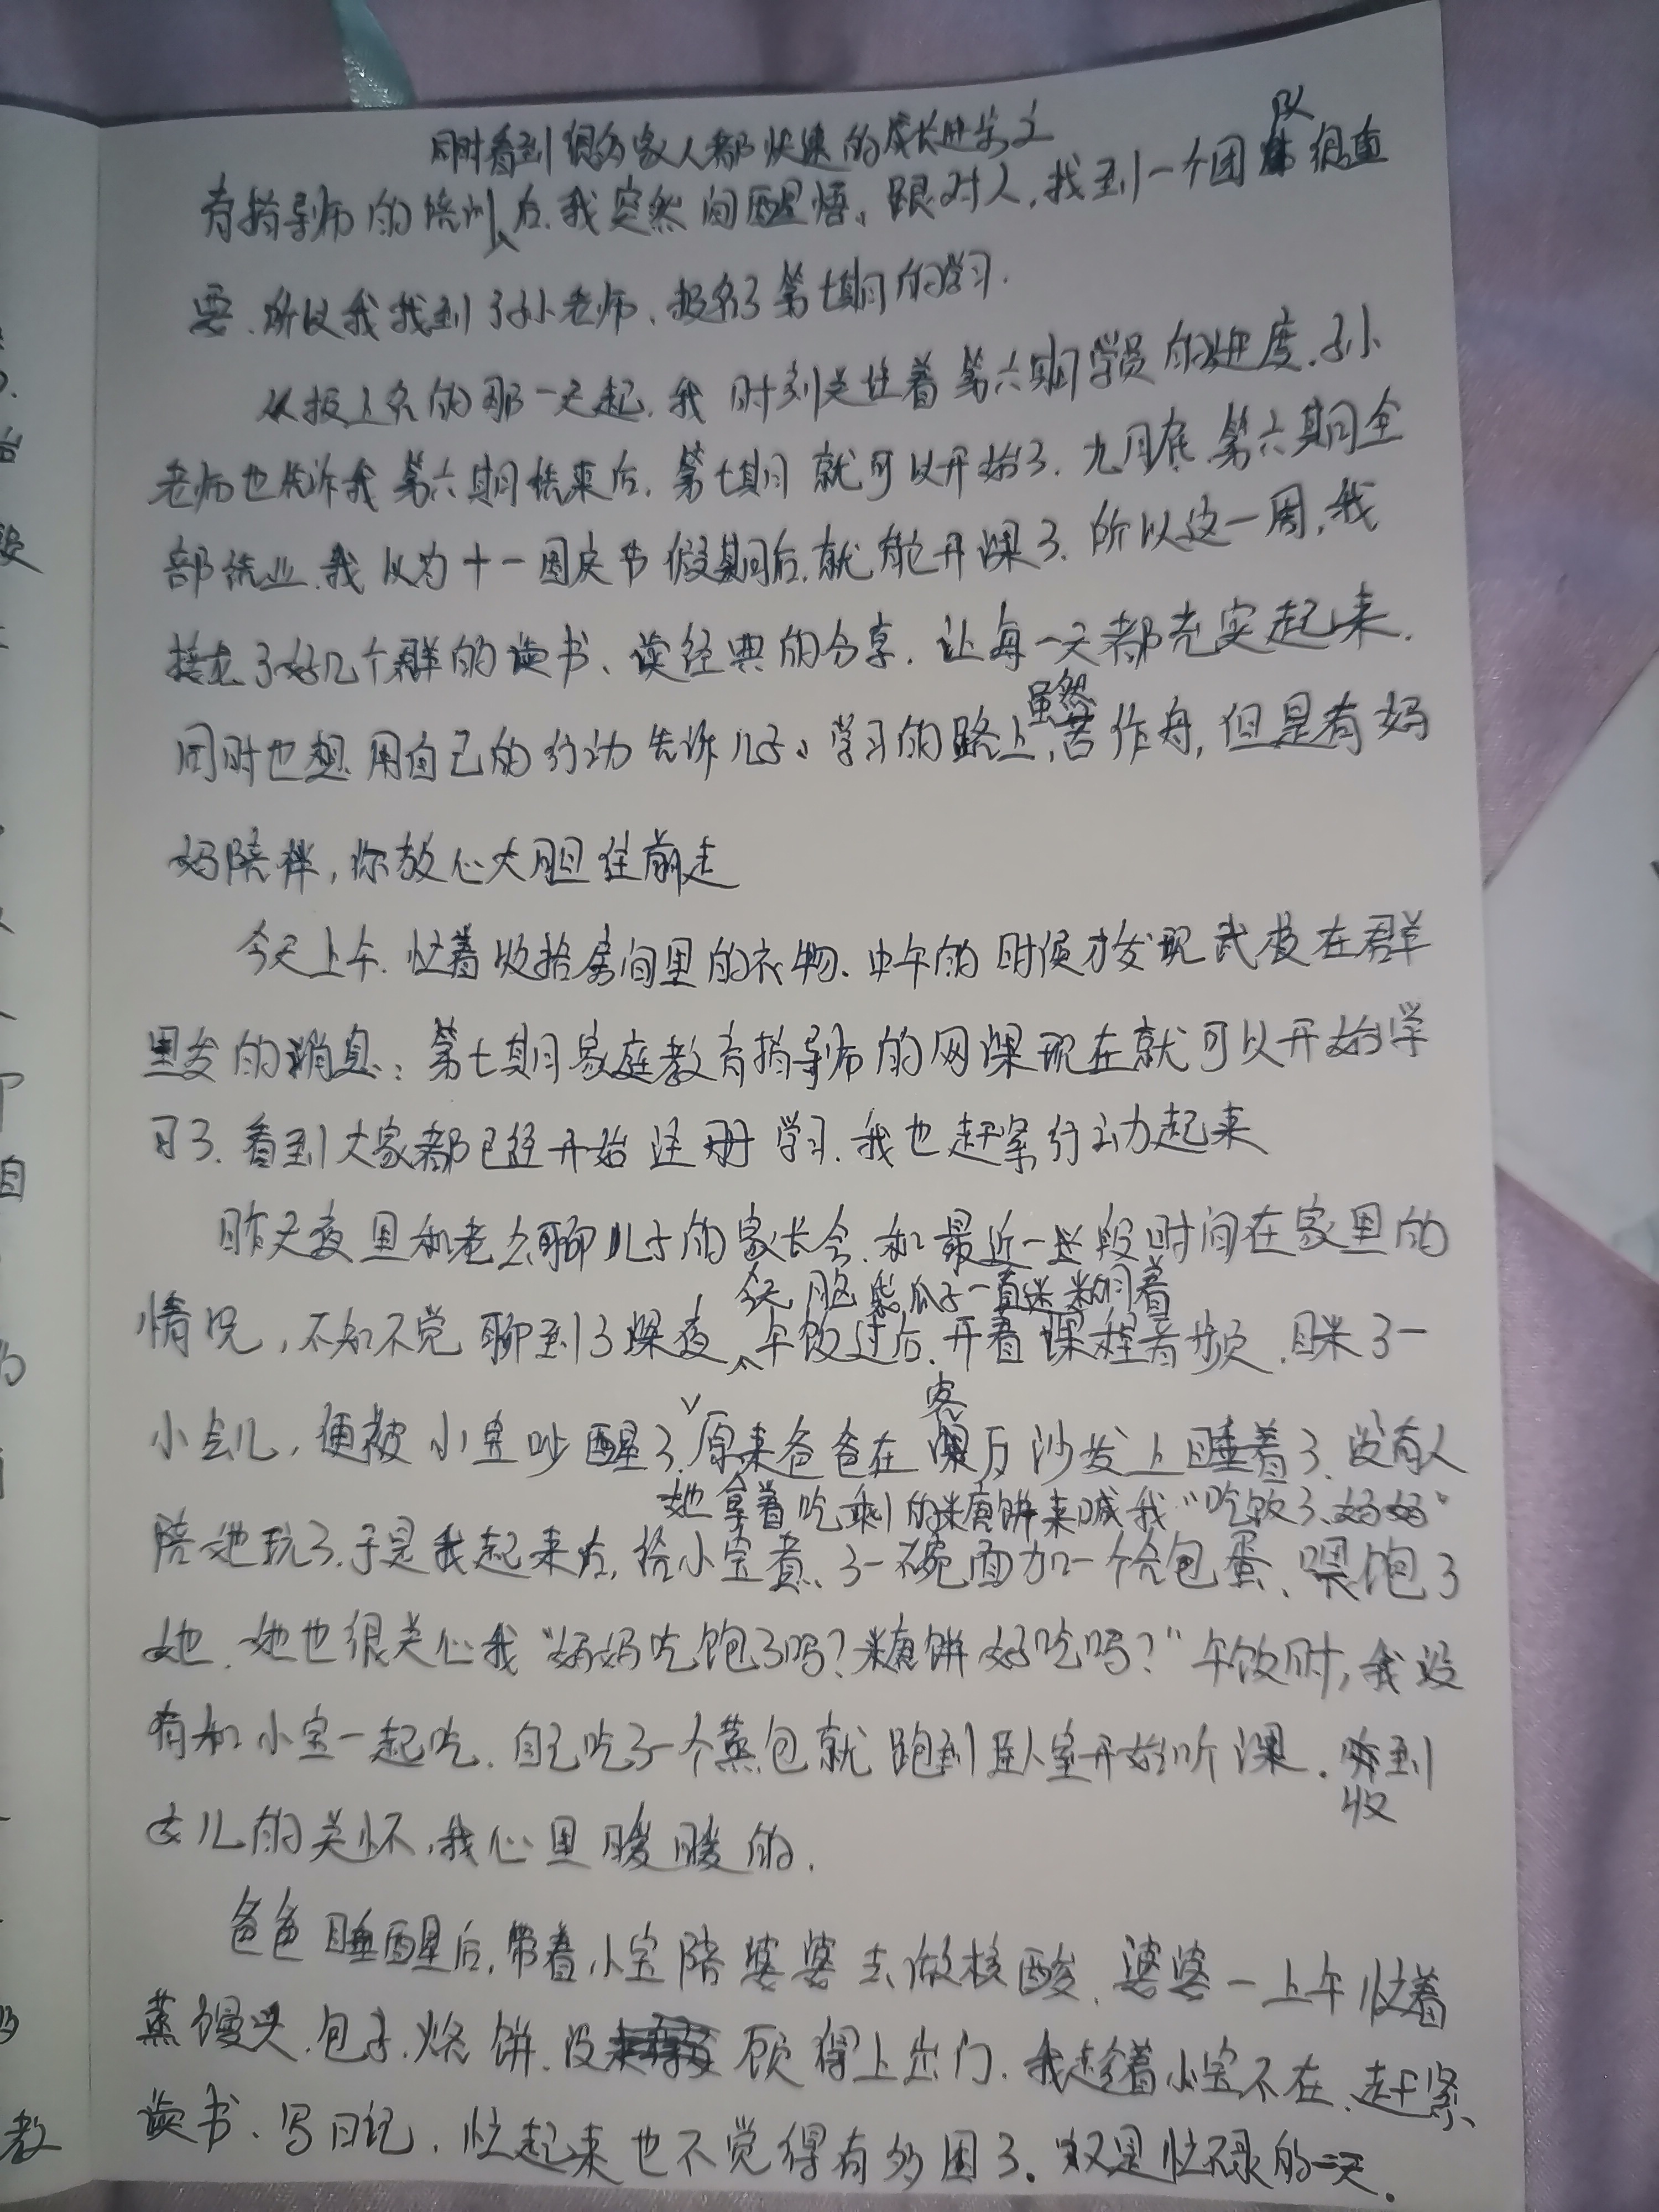 同时看到很多家人都快速的成长进步之
育指导师的培训后，我突然间醒悟，跟对人，找到一个团队很重
要，所以我找到了孙老师，报名了第七期的学习．
从报上名的那一天起，我时刻关注着第六期学员的进度，孙
老师也告诉我第六期结束后，第七期就可以开始了．九月底，第六期全
部结业，我以为十一国庆节假期后，就能开课了．所以这一周，我
接龙了好几个群的读书、读经典的分享．让每一天都充实起来．
同时也想用自己的行动告诉儿子，学习的路上，虽然苦作舟，但是有妈
妈陪伴，你放心大胆往前走
今天上午，忙着收拾房间里的衣物，中午的时候才发现武校在群
里发的消息：第七期家庭教育指导师的网课现在就可以开始学
习了．看到大家都已经开始注册学习，我也赶紧行动起来
昨天夜里和老公聊儿子的家长会，和最近一些段时间在家里的
今天脑袋瓜子一直迷糊着
情况，不知不觉聊到了深夜，午饭过后，开着课程音频，眯了一
小会儿，便被小宝吵醒了，原来爸爸在客厅沙发上睡着了，没有人
她拿着吃剩的糖饼来喊我“吃饭了，妈妈”
陪她玩了，于是我起来后，给小宝煮了一碗面加一个荷包蛋，喂饱了
她，她也很关心我“妈妈吃饱了吗？糖饼好吃吗？”午饭时，我没
有和小宝一起吃，自己吃了一个蒸包就跑到卧室开始听课．收到
女儿的关怀，我心里暖暖的．
爸爸睡醒后，带着小宝陪婆婆去做核酸，婆婆一上午忙着
蒸馒头，包子，烙饼，没顾得上出门．我趁着小宝不在，赶紧
读书、写日记，忙起来也不觉得有多困了．又是忙碌的一天．
教